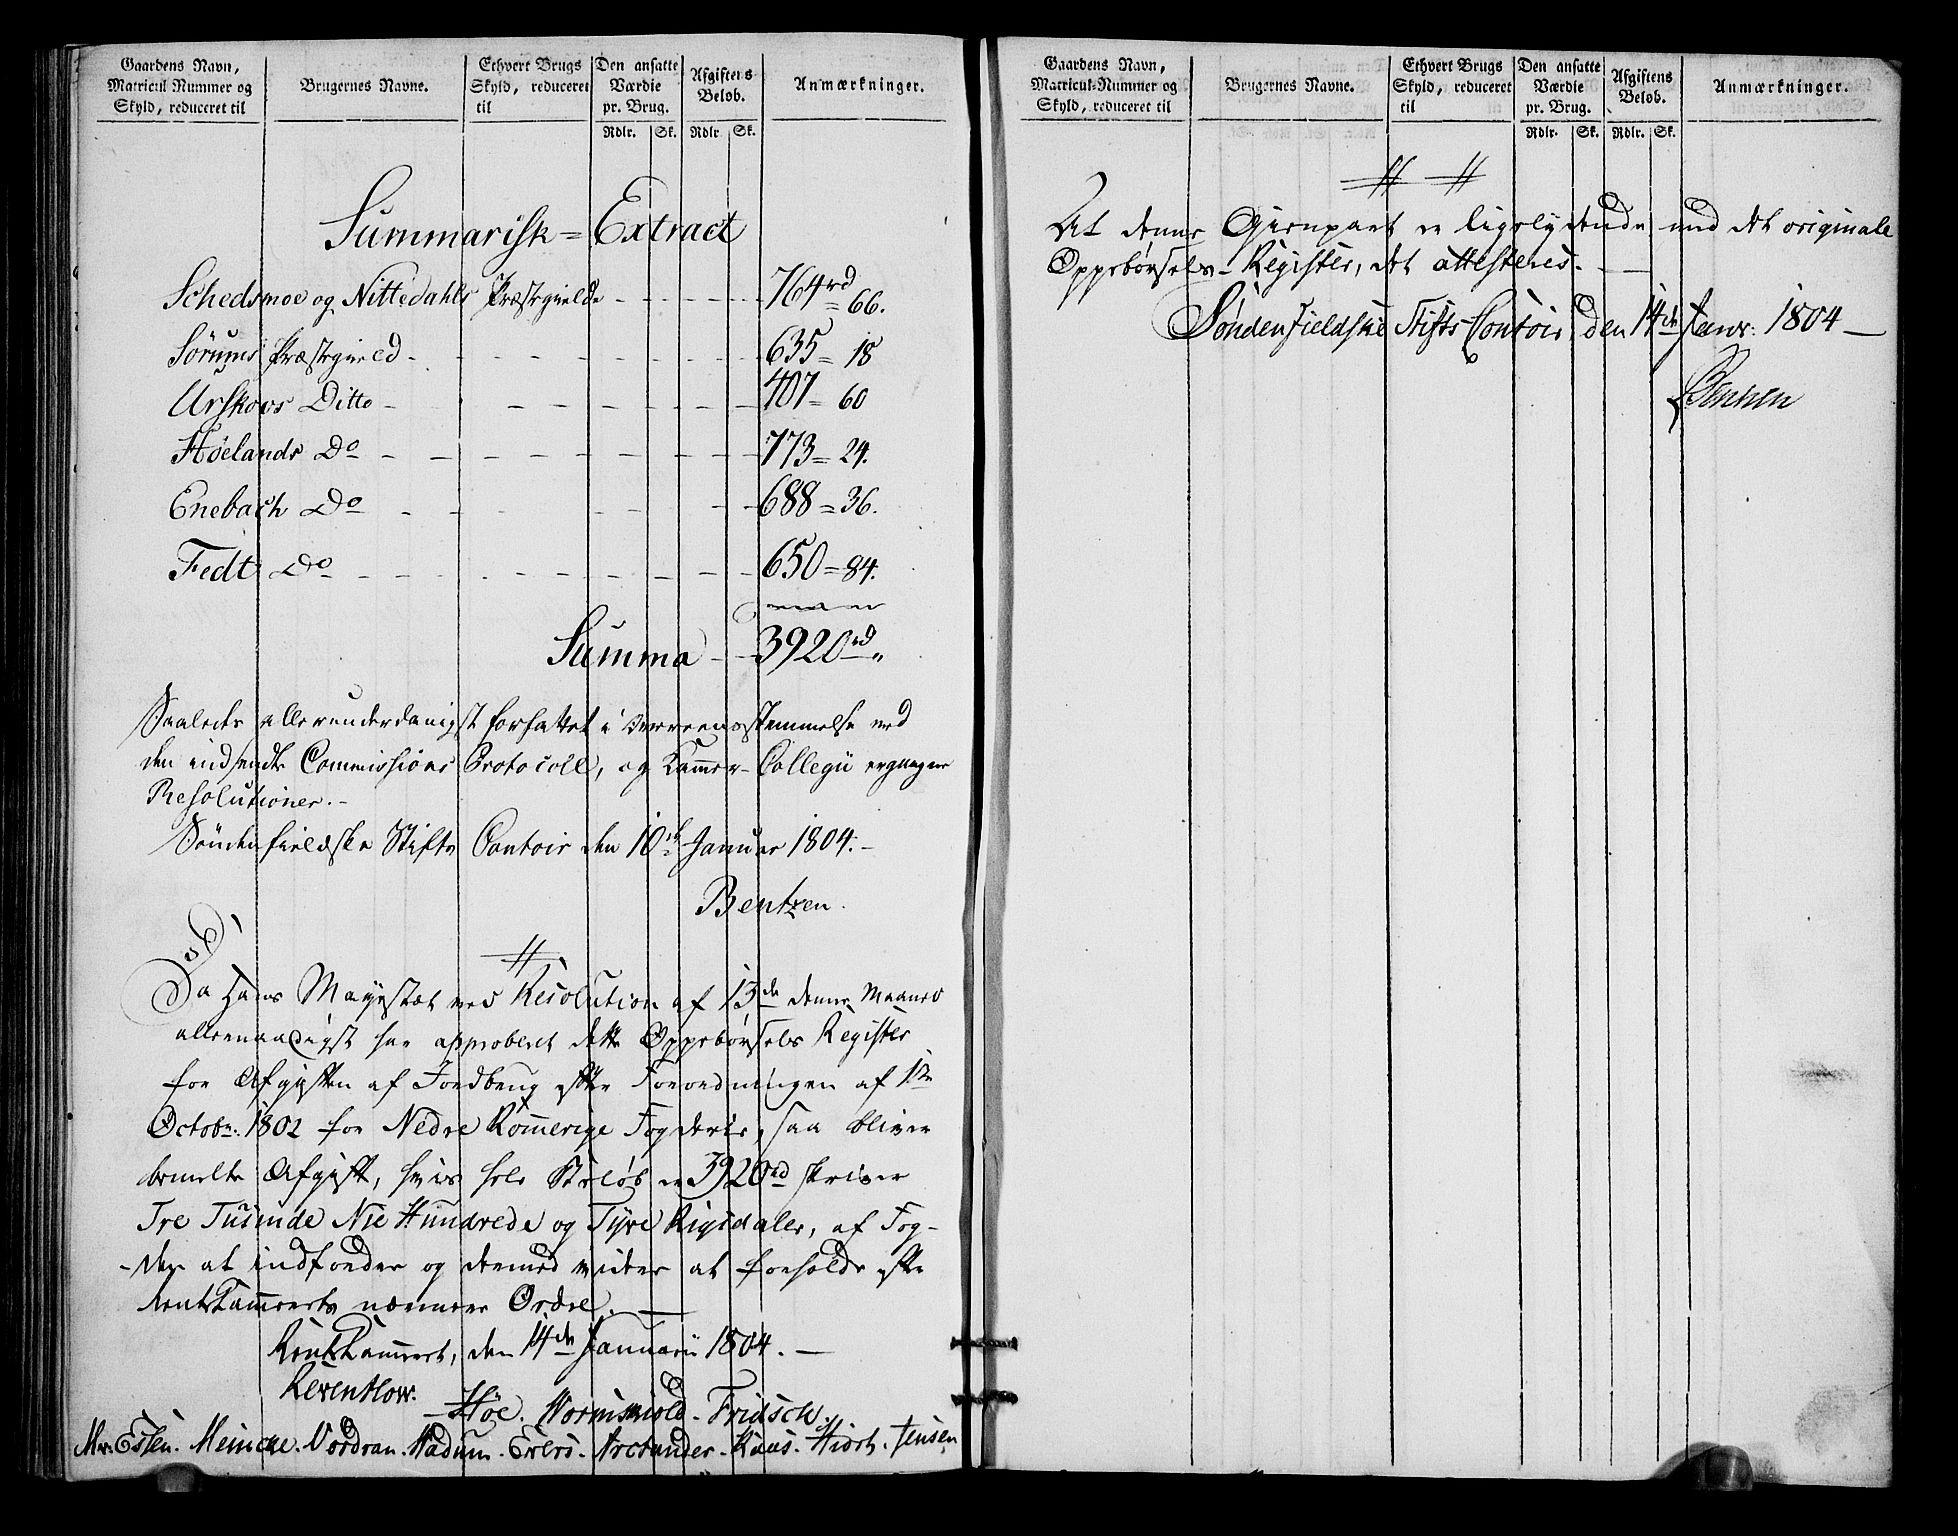 Gaardens Navn,
Matricul Nummer og
Skyld, reduceret til
Brugernes Navne.
Ethvert Brugs
Skyld, reduceret
til
Den ansatte
Værdie
pr. Brug.
Rdlr. Sk.
Afgiftens
Beløb.
Rdlr. Sk.
Anmærkninger.
Summarisk = Extract
Schedsmoe og Nittedahls Præstegielde - - - - - 764rd = 66.
Sørums Præstegield - - - - - - 635 = 18
Urskovs Ditto - - - - - - - 407 = 60
Høelands Do - - - - - - - - 773 = 24.
Enebach Do - - - - - - 688 = 36.
Fedts Do - - - - - - - - 650 = 84.
Summa - - 3920rd „
Saaledes allerunderdanigst forfattet i Overeensstemmelse med
den indsendte Commissions Protocoll, og Kammer-Collegii ergangne
Resolutioner. -
Søndenfieldske Stifts Contoir den 10de Januar 1804. -
Bentzen.
#
Da Hans Mayestæt ved Resolution af 13de denne Maaned
allernaadigst har approberet dette Oppebørsels Register
for Afgiften af Jordbrug efter Forordningen af 1ste
Octobr: 1802 for Nedre Rommerige Fogderie, saa bliver
bemelte Afgift, hvis hele Beløb er 3920rd skriver
Tre Tusinde Nie Hundrede og Tyve Rigsdaler, af Fog-
-den at indfordre og dermed videre at forholde efter
Rentekammerets nærmere Ordre. -
Rentekammeret, den 14de Januarii 1804. -
Reventlow.
Høe. Wormskiold. Fridsch.
Meincke. Wadum. Arctander. Kaas. Jensen
Gaardens Navn,
Matricul-Nummer og
Skyld, reduceret til
Brugernes Navne.
Ethvert Brugs
Skyld, reduceret
til
Den ansatte
Værdie
pr. Brug.
Rdlr. Sk.
Afgiftens
Beløb.
Rdlr. Sk.
Anmærkninger.
# - #
At denne Gienpart er ligelydende med det originale
Oppebørsels-Register, det attesteres. -
Søndenfieldske Stifts-Contoir, den 14de Janv: 1804 -
Bentzen